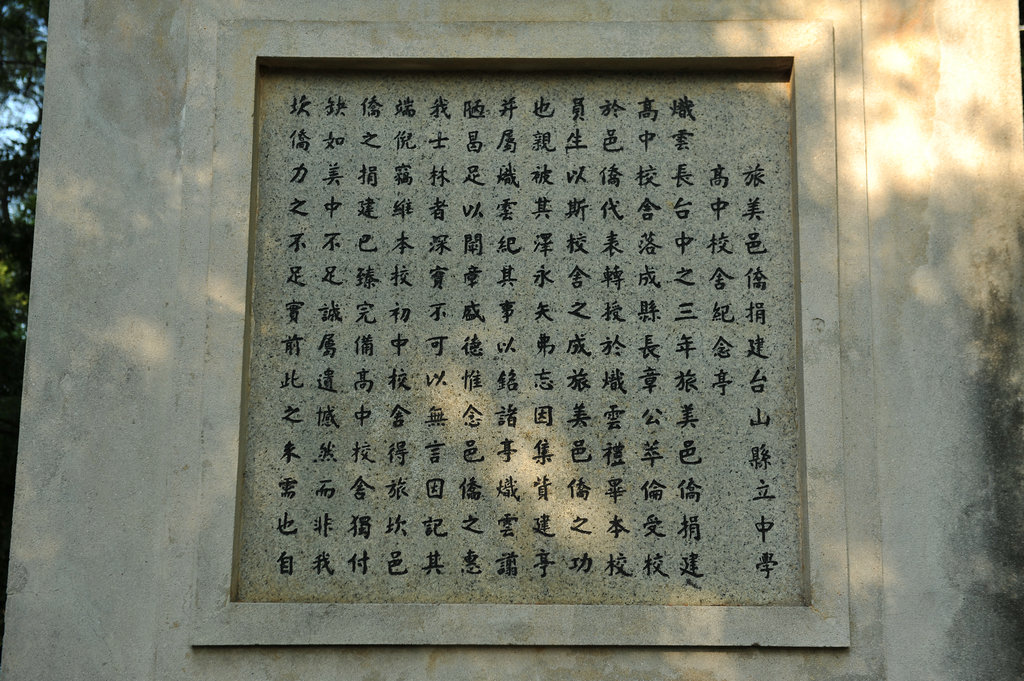 旅美邑僑捐建台山縣立中學
高中校舍紀念亭
熾雲長台中之三年旅美邑僑捐建
高中校舍落成縣長章公萃倫受校
於邑僑代表轉授於熾雲禮畢本校
員生以斯校舍之成旅美邑僑之功
也親被其澤永矢弗忘因集貲建亭
并屬熾雲紀其事以銘諸亭熾雲譾
陋曷足以闡章盛德惟念邑僑之惠
我士林者深實不可以無言因記其
端倪竊維本校初中校舍得旅坎邑
僑之捐建已臻完備高中校舍獨付
缺如美中不足誠屬遺憾然而非我
坎僑力之不足實前此之未需也自